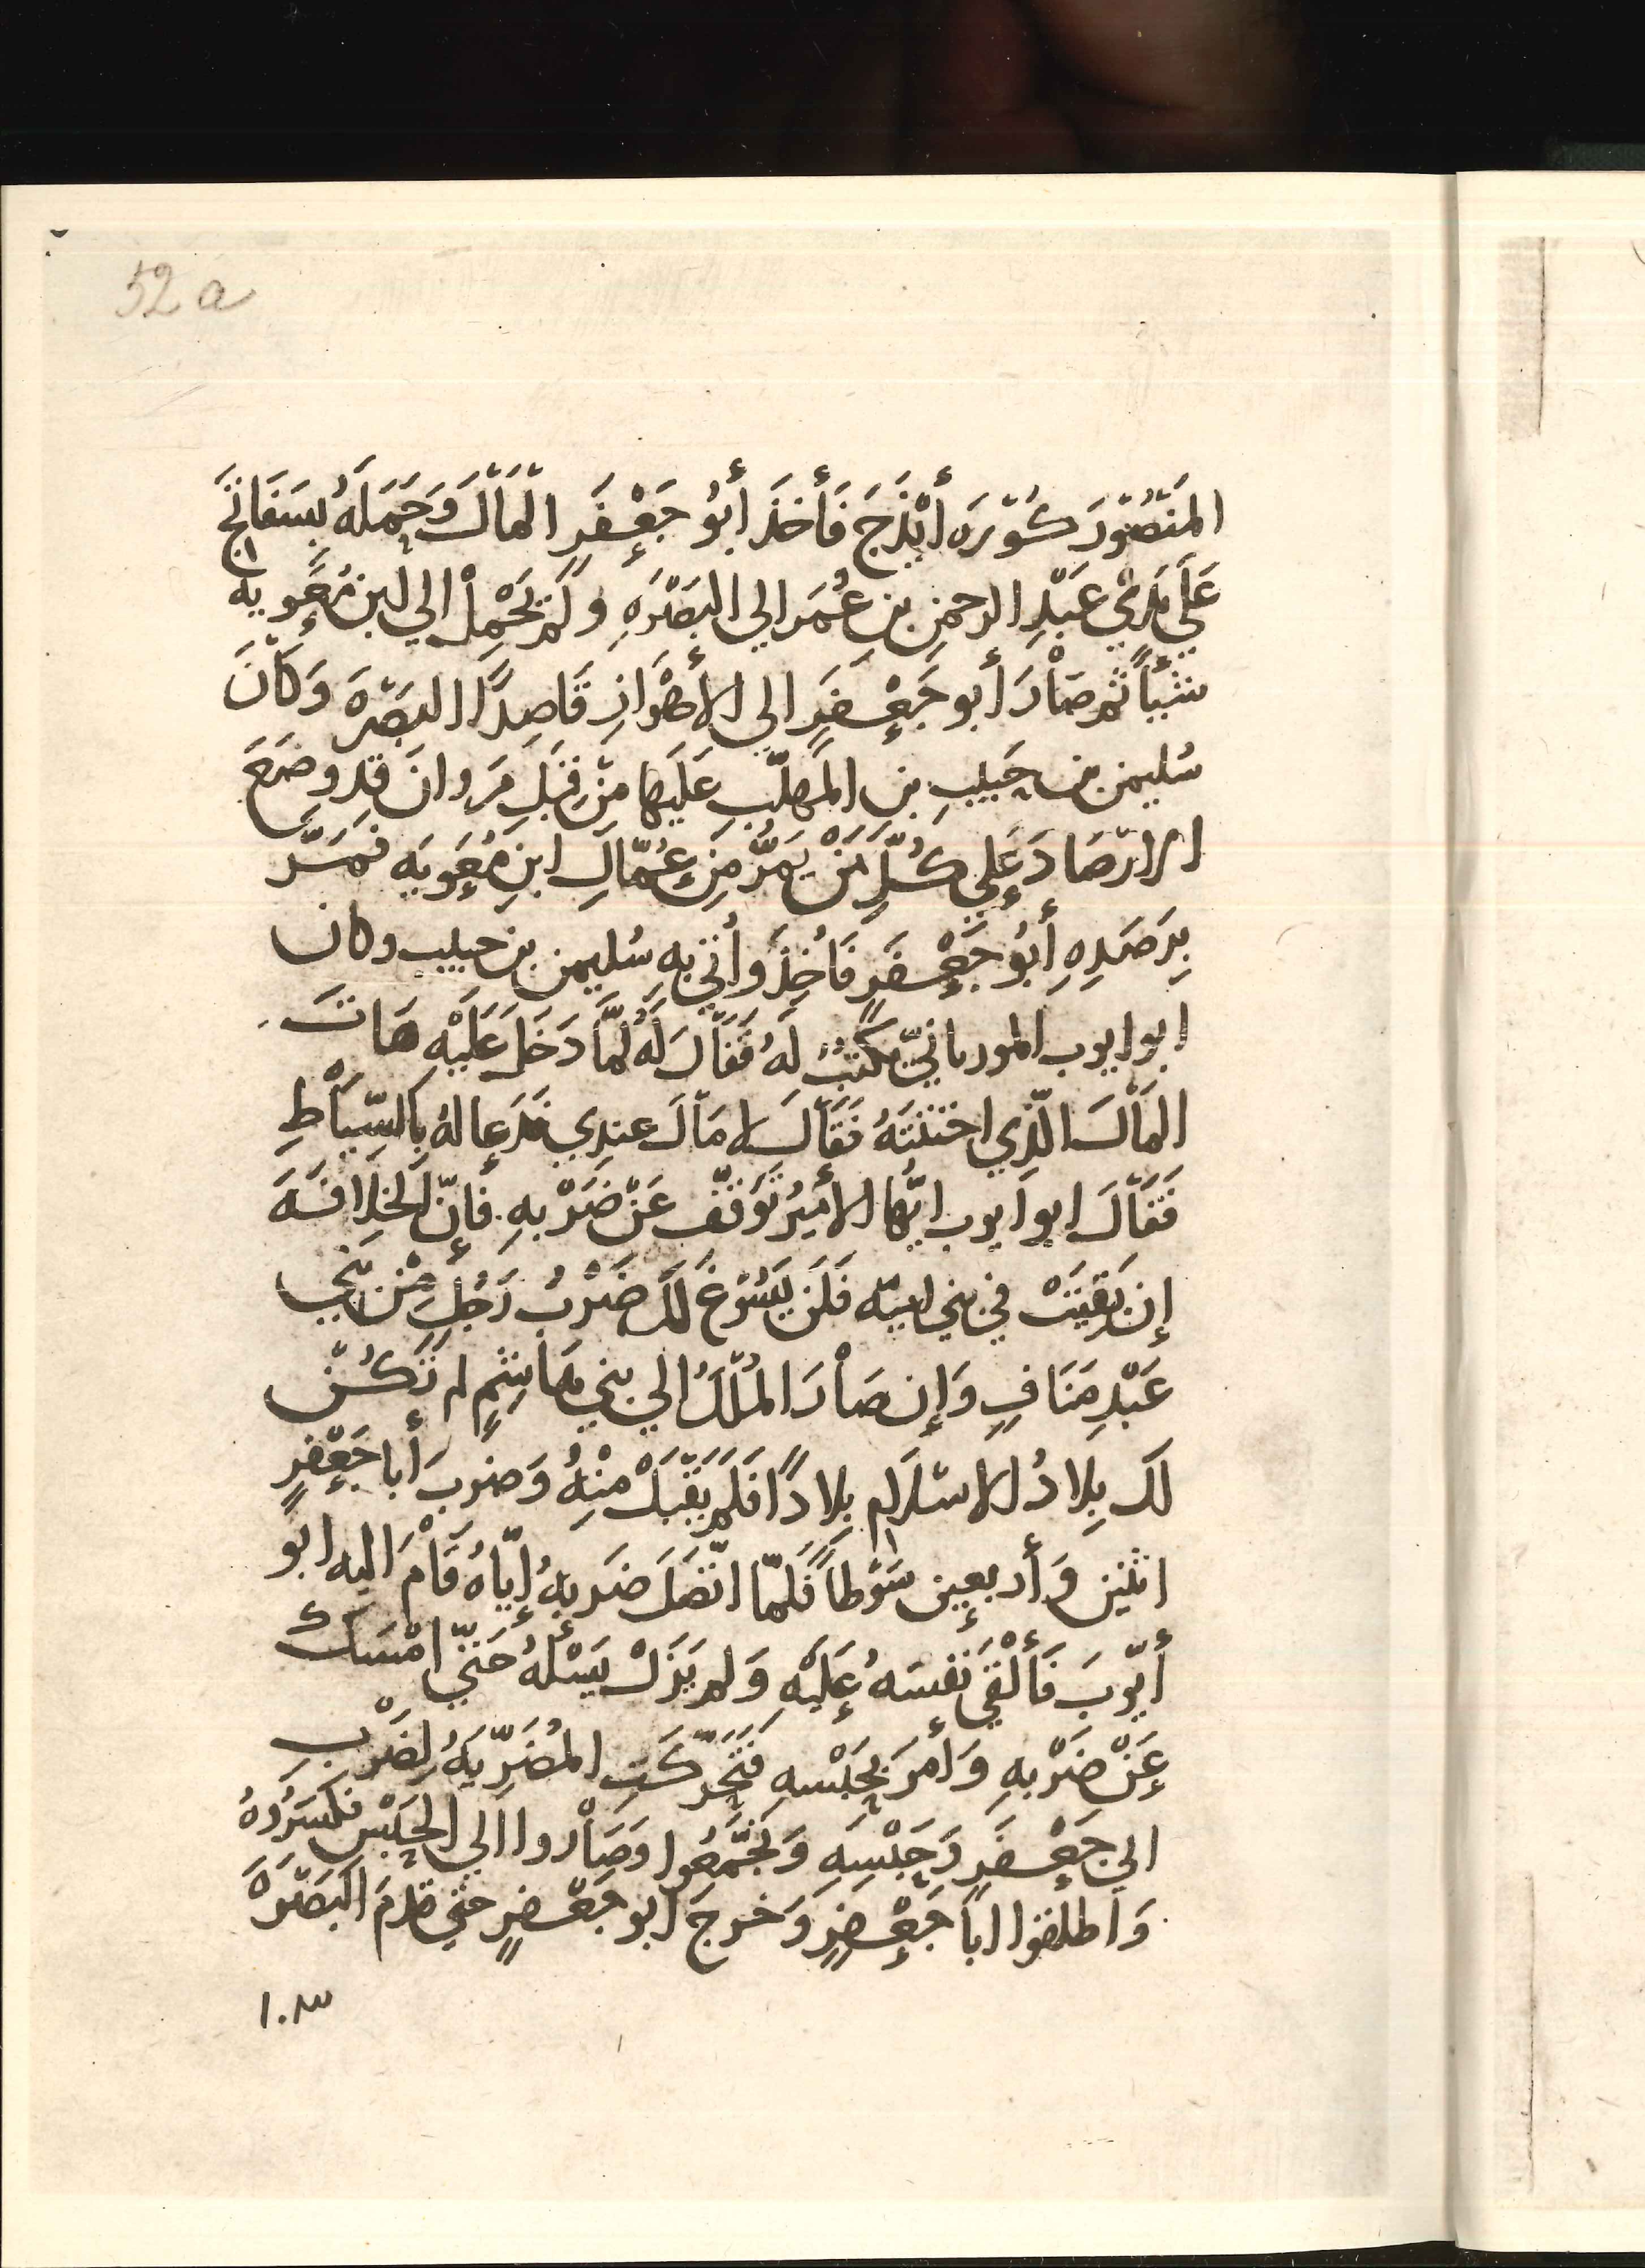 52 a
المَنْصُوْرَ كُوْرَه أَيْذَجَ فَأَخَذَ أَبُو جَعْفَرٍ الْمَاْلَ وَحَمَلَهُ بِسَفَاتِجَ
عَلَي يَدَيْ عَبْدِ الرحمنِ بنِ عُمَرَ الي البَصْرَهِ وَلَمْ يَحْمِلْ الي ابنِ مُعَويه
شَيْئاً ثم صَاْرَ أبو جَعْفَرٍ الي الأَهْوَازِ قَاصِدًا البَصْرَهَ وَكَاْنَ
سُليمن بن حَبِيبِ بنِ المُهلَّبِ عَلَيها مِنْ قِبَلِ مَرَوانَ قد وَضَعَ
الارْصَادَ عَلي كُلِّ مَنْ يَمُرُّ مِن عُمَّالِ ابنِ مُعَوِيَه فَمَرَّ
بِرَصَدِهِ أَبُو جَعْفَرٍ فَأُخِذَ وَأُتِيَ بِهِ سُليمن بن حبيب وكان
ابو ايوب المورياني يكتُبُ لَهُ فَقَاْلَ لَهُ لَمَّا دَخَلَ عَلَيْهِ هَاتَ
المَاْلَ الَّذِي اختنتَهُ فَقَاْلَ لا مَاْلَ عِندِي فَدَعا لهُ بِالسِّيَاْطِ
فَقَاْلَ ابو ايوب ايُّها الأميرُ تَوَقَّف عَنْ ضَرْبِهِ فَإِنَّ الخِلافَهَ
إن بَقِيَتْ في بني اميّه فَلَن يَسُوْغَ لَكَ ضَرْبُ رَجُلٍ مِنْ بَنِي
عَبْدِ مَنَافٍ وَإن صَاْرَ المُلْكُ الي بني هَاشِمٍ لم تَكُنْ
لَك بِلادُ الاسْلَامِ بِلادًا فَلَمْ يَقْبَلْ مِنْهُ وَضَرَبَ أَبا جَعْفَرٍ
اثنين وَأربعين سَوْطاً فَلَمّا اتَّصَلَ ضَربهُ إيّاهُ قَاْمَ اليه ابو
أيّوبَ فَأَلْقي نَفْسَهُ عَلَيْهِ وَلم يَزَلْ يَسْلُهُ حَتّي امْسَكَ
عَنْ ضَرْبِهِ وَأَمَرَ بِحَبْسِهِ فَتَحَرّكَتِ المُضَرِّيَهُ لِضَرْبِ
ابي جَعْفَرٍ وَحَبْسِهِ وَتَجَمّعُوا وَصَاْروا الي الحَبْسِ فَكَسَرُوهُ
وَأطلقوا اباَ جَعْفَرٍ وَخرجَ ابو جَعْفَرٍ حتي قدمَ البَصْرَهَ
١٠٣